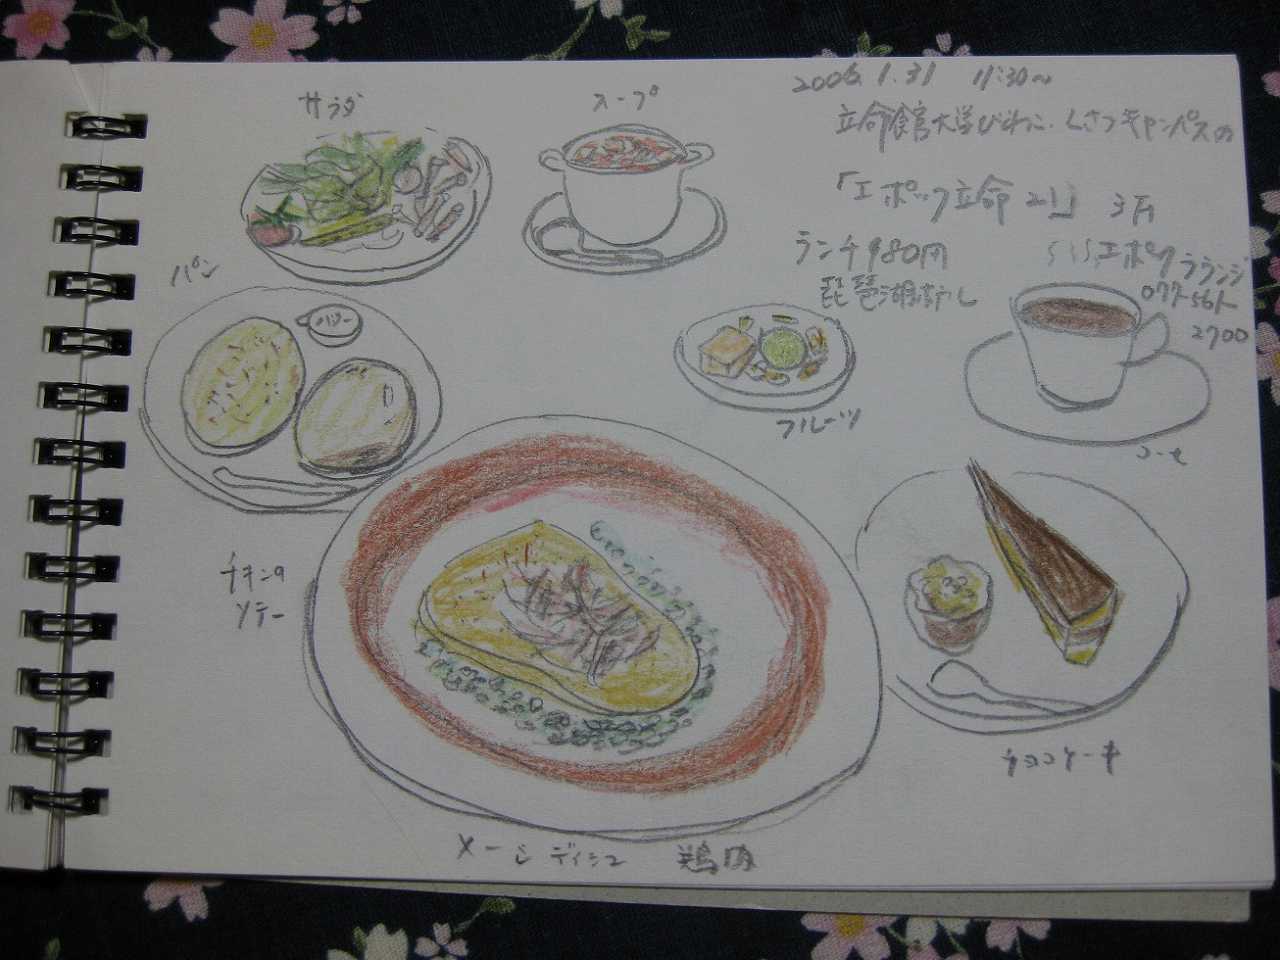 2006.1.31 11:30〜
立命館大学びわこ・くさつキャンパスの
「エポック立命21」 3F
ランチ980円
エポックラウンジ
琵琶湖
077-561-
2700
サラダ
スープ
パン
バター
フルーツ
コーヒ
チキンの
ソテー
チョコケーキ
メーンディシュ 鶏肉